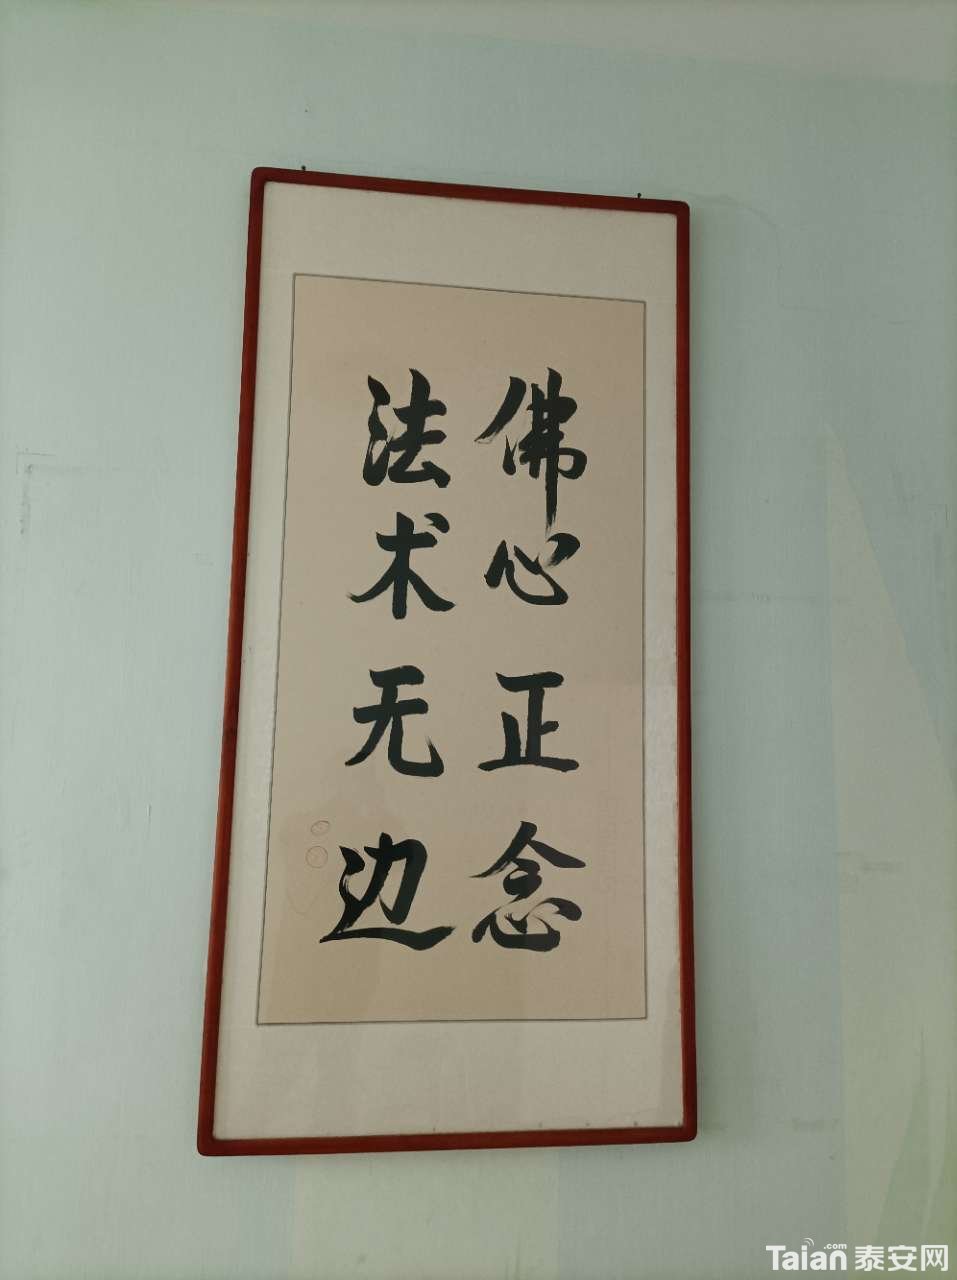 佛心正念
法术无边
Taian.com 泰安网